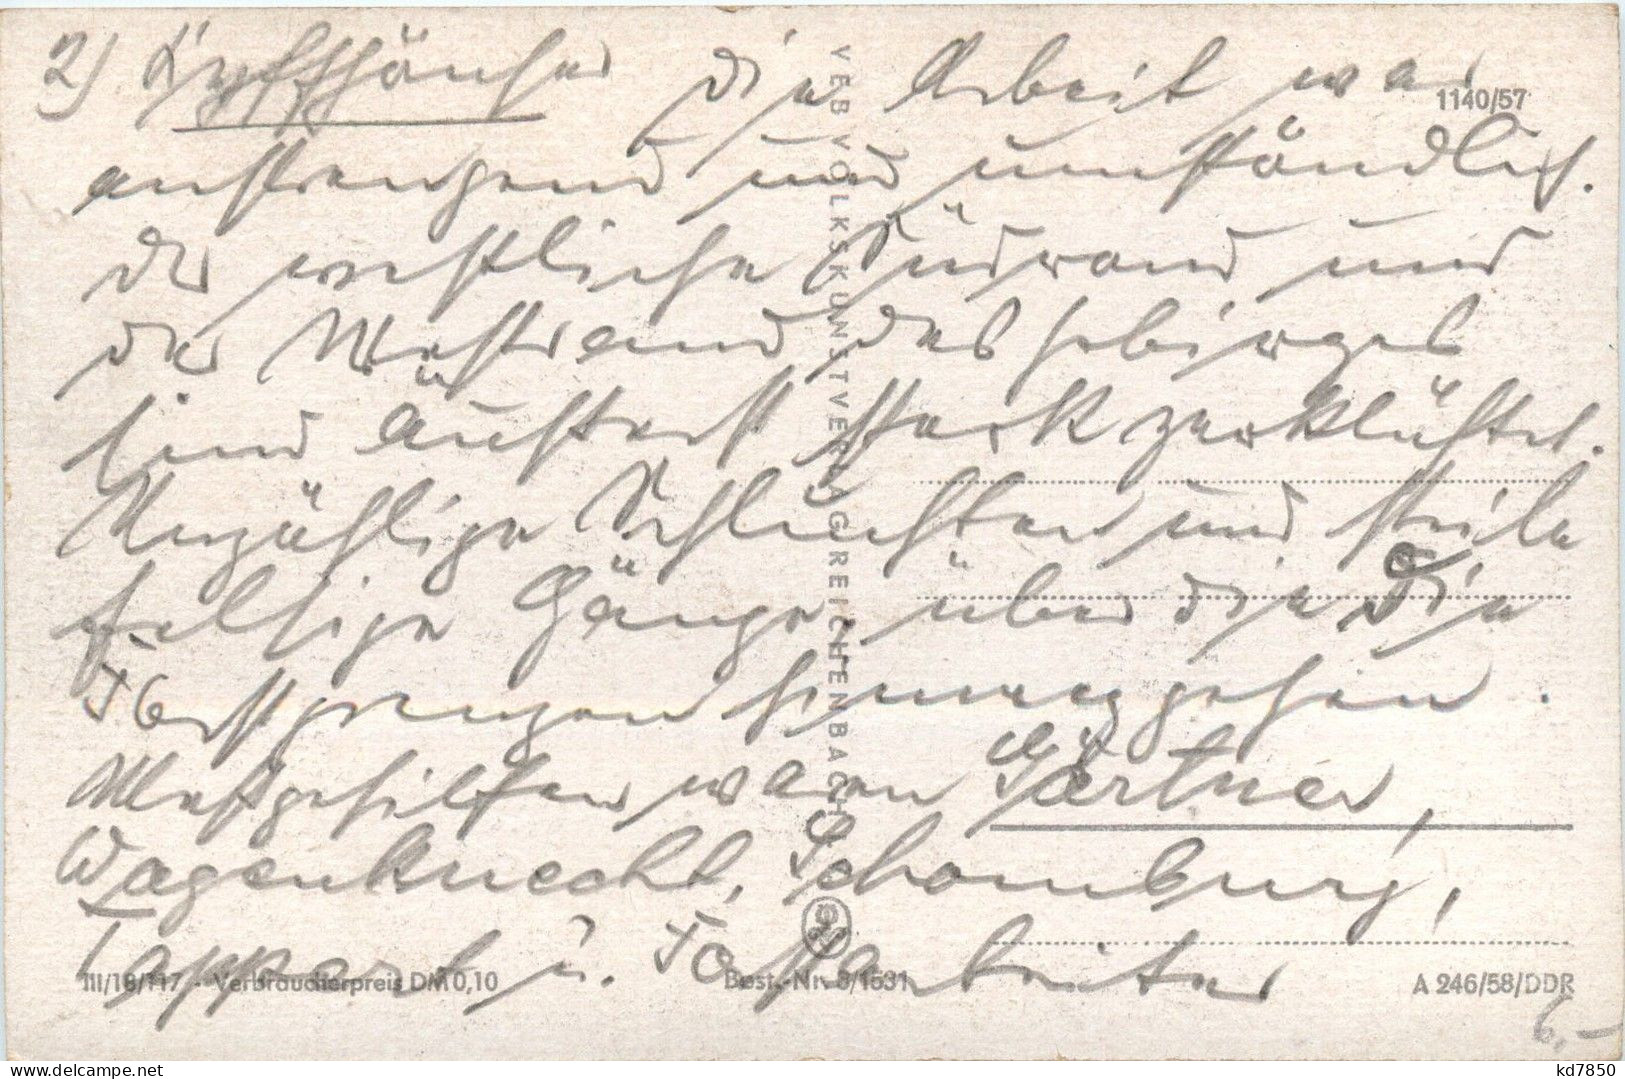 2) Kyffhäuser die Arbeit war
1140/57
anstrengend und umständlich.
Der westliche Südrand und
der Westrand des Gebirges
sind äußerst stark zerklüftet.
Unzählige Schluchten und steile
felsige Hänge über die die
Forstgrenzen hinweggehen.
Meßgehilfen waren Gärtner,
Wagenknecht, Schomburg,
Tappert u. Forstarbeiter
VEB VOLKSKUNSTVERLAG REICHENBACH
III/18/117 - Verbraucherpreis DM 0,10
Best.-Nr. 8/1531
A 246/58/DDR
6,-
kd7850